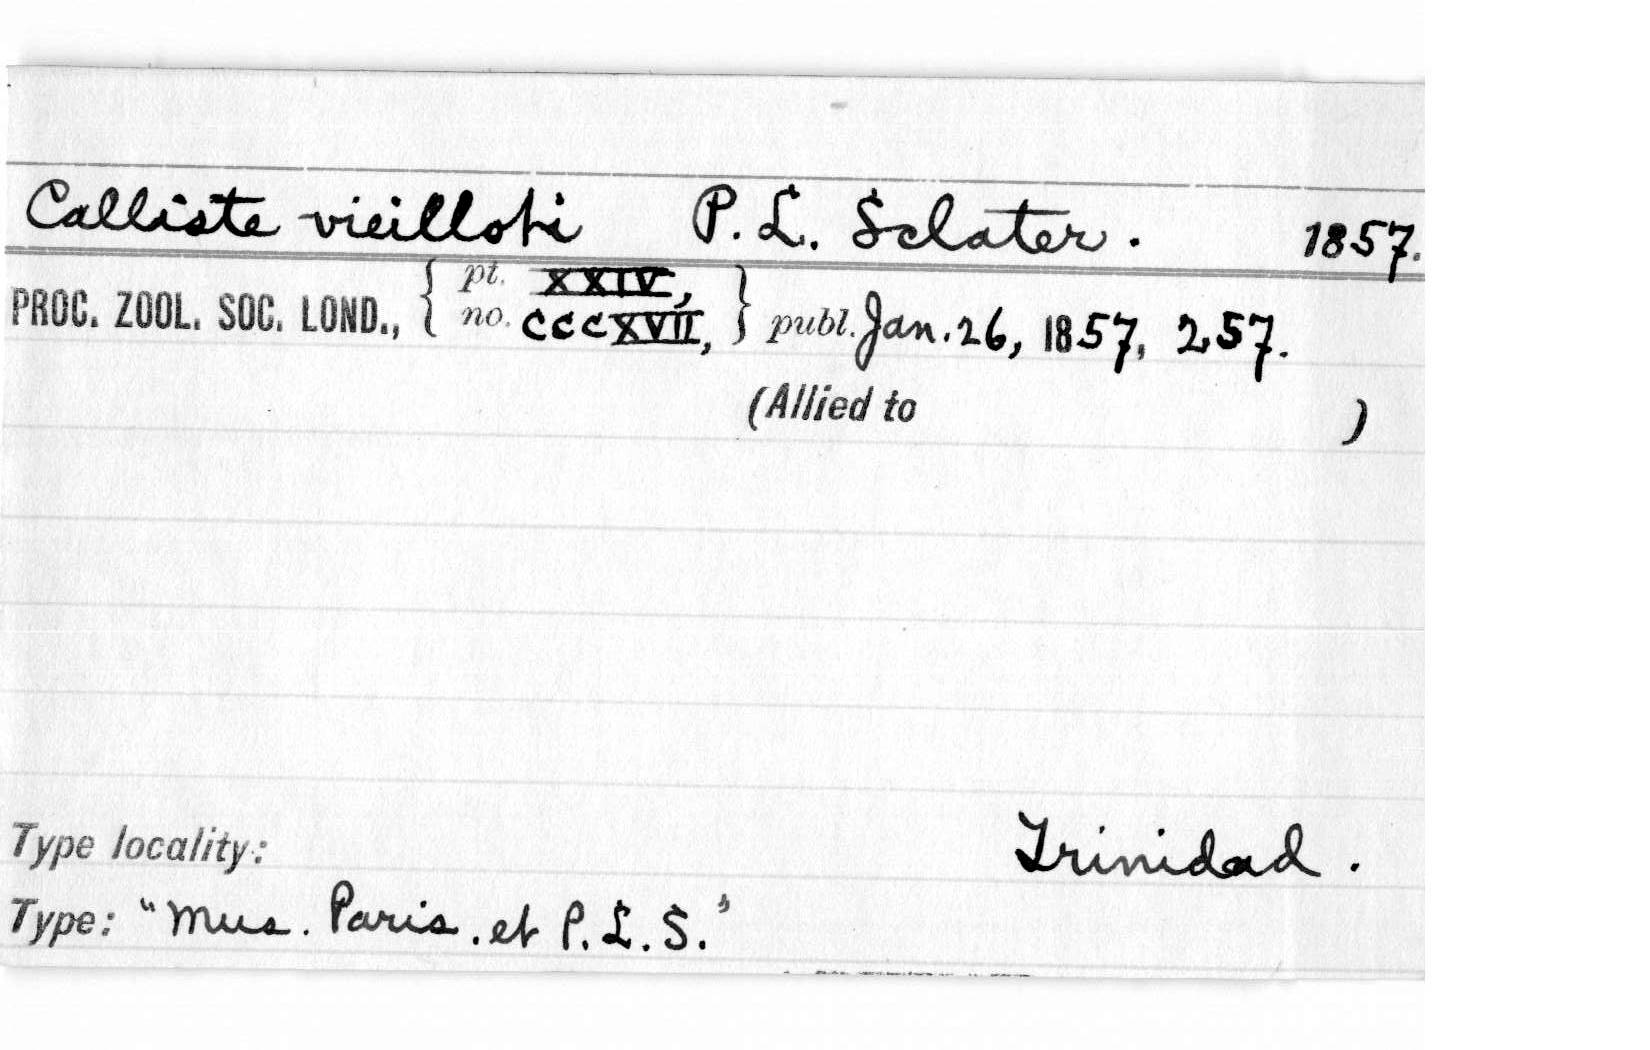 Calliste vieilloti P. L. Sclater. 1857.
PROC. ZOOL. SOC. LOND., { pt. XXIV, no. CCCXVII, } publ. Jan. 26, 1857, 257.
(Allied to )
Type locality: Trinidad.
Type: "Mus. Paris. et P. L. S."